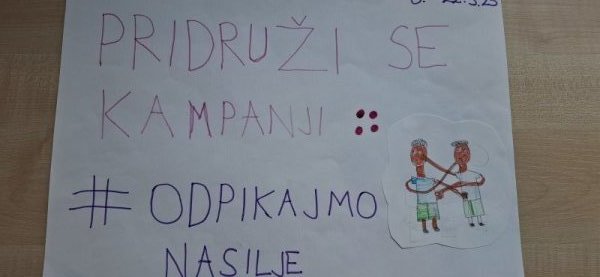 22.3.23
PRIDRUŽI SE
KAMPANJI
#ODPIKAJMO
NASILJE